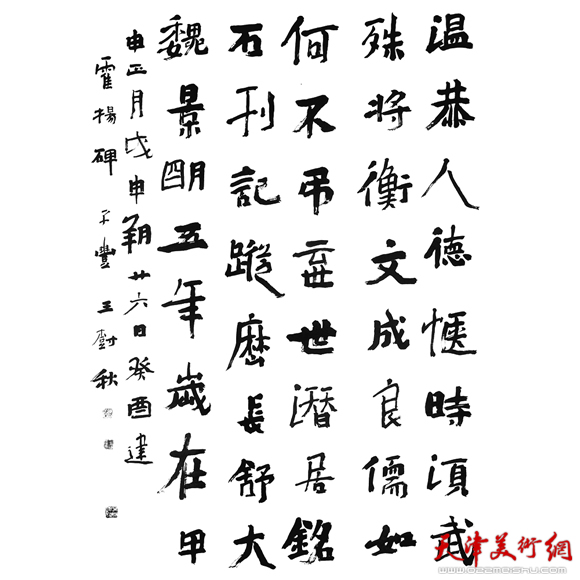 温恭人德惬時湏武
殊将衡文成良儒如
何不吊弃世潛居銘
石刊記蹤厯長舒大
魏景明五年歲在甲
申正月戊申朔廿六日癸酉建
霍揚碑 豐王樹秋
天津美術網
www.022meishu.com